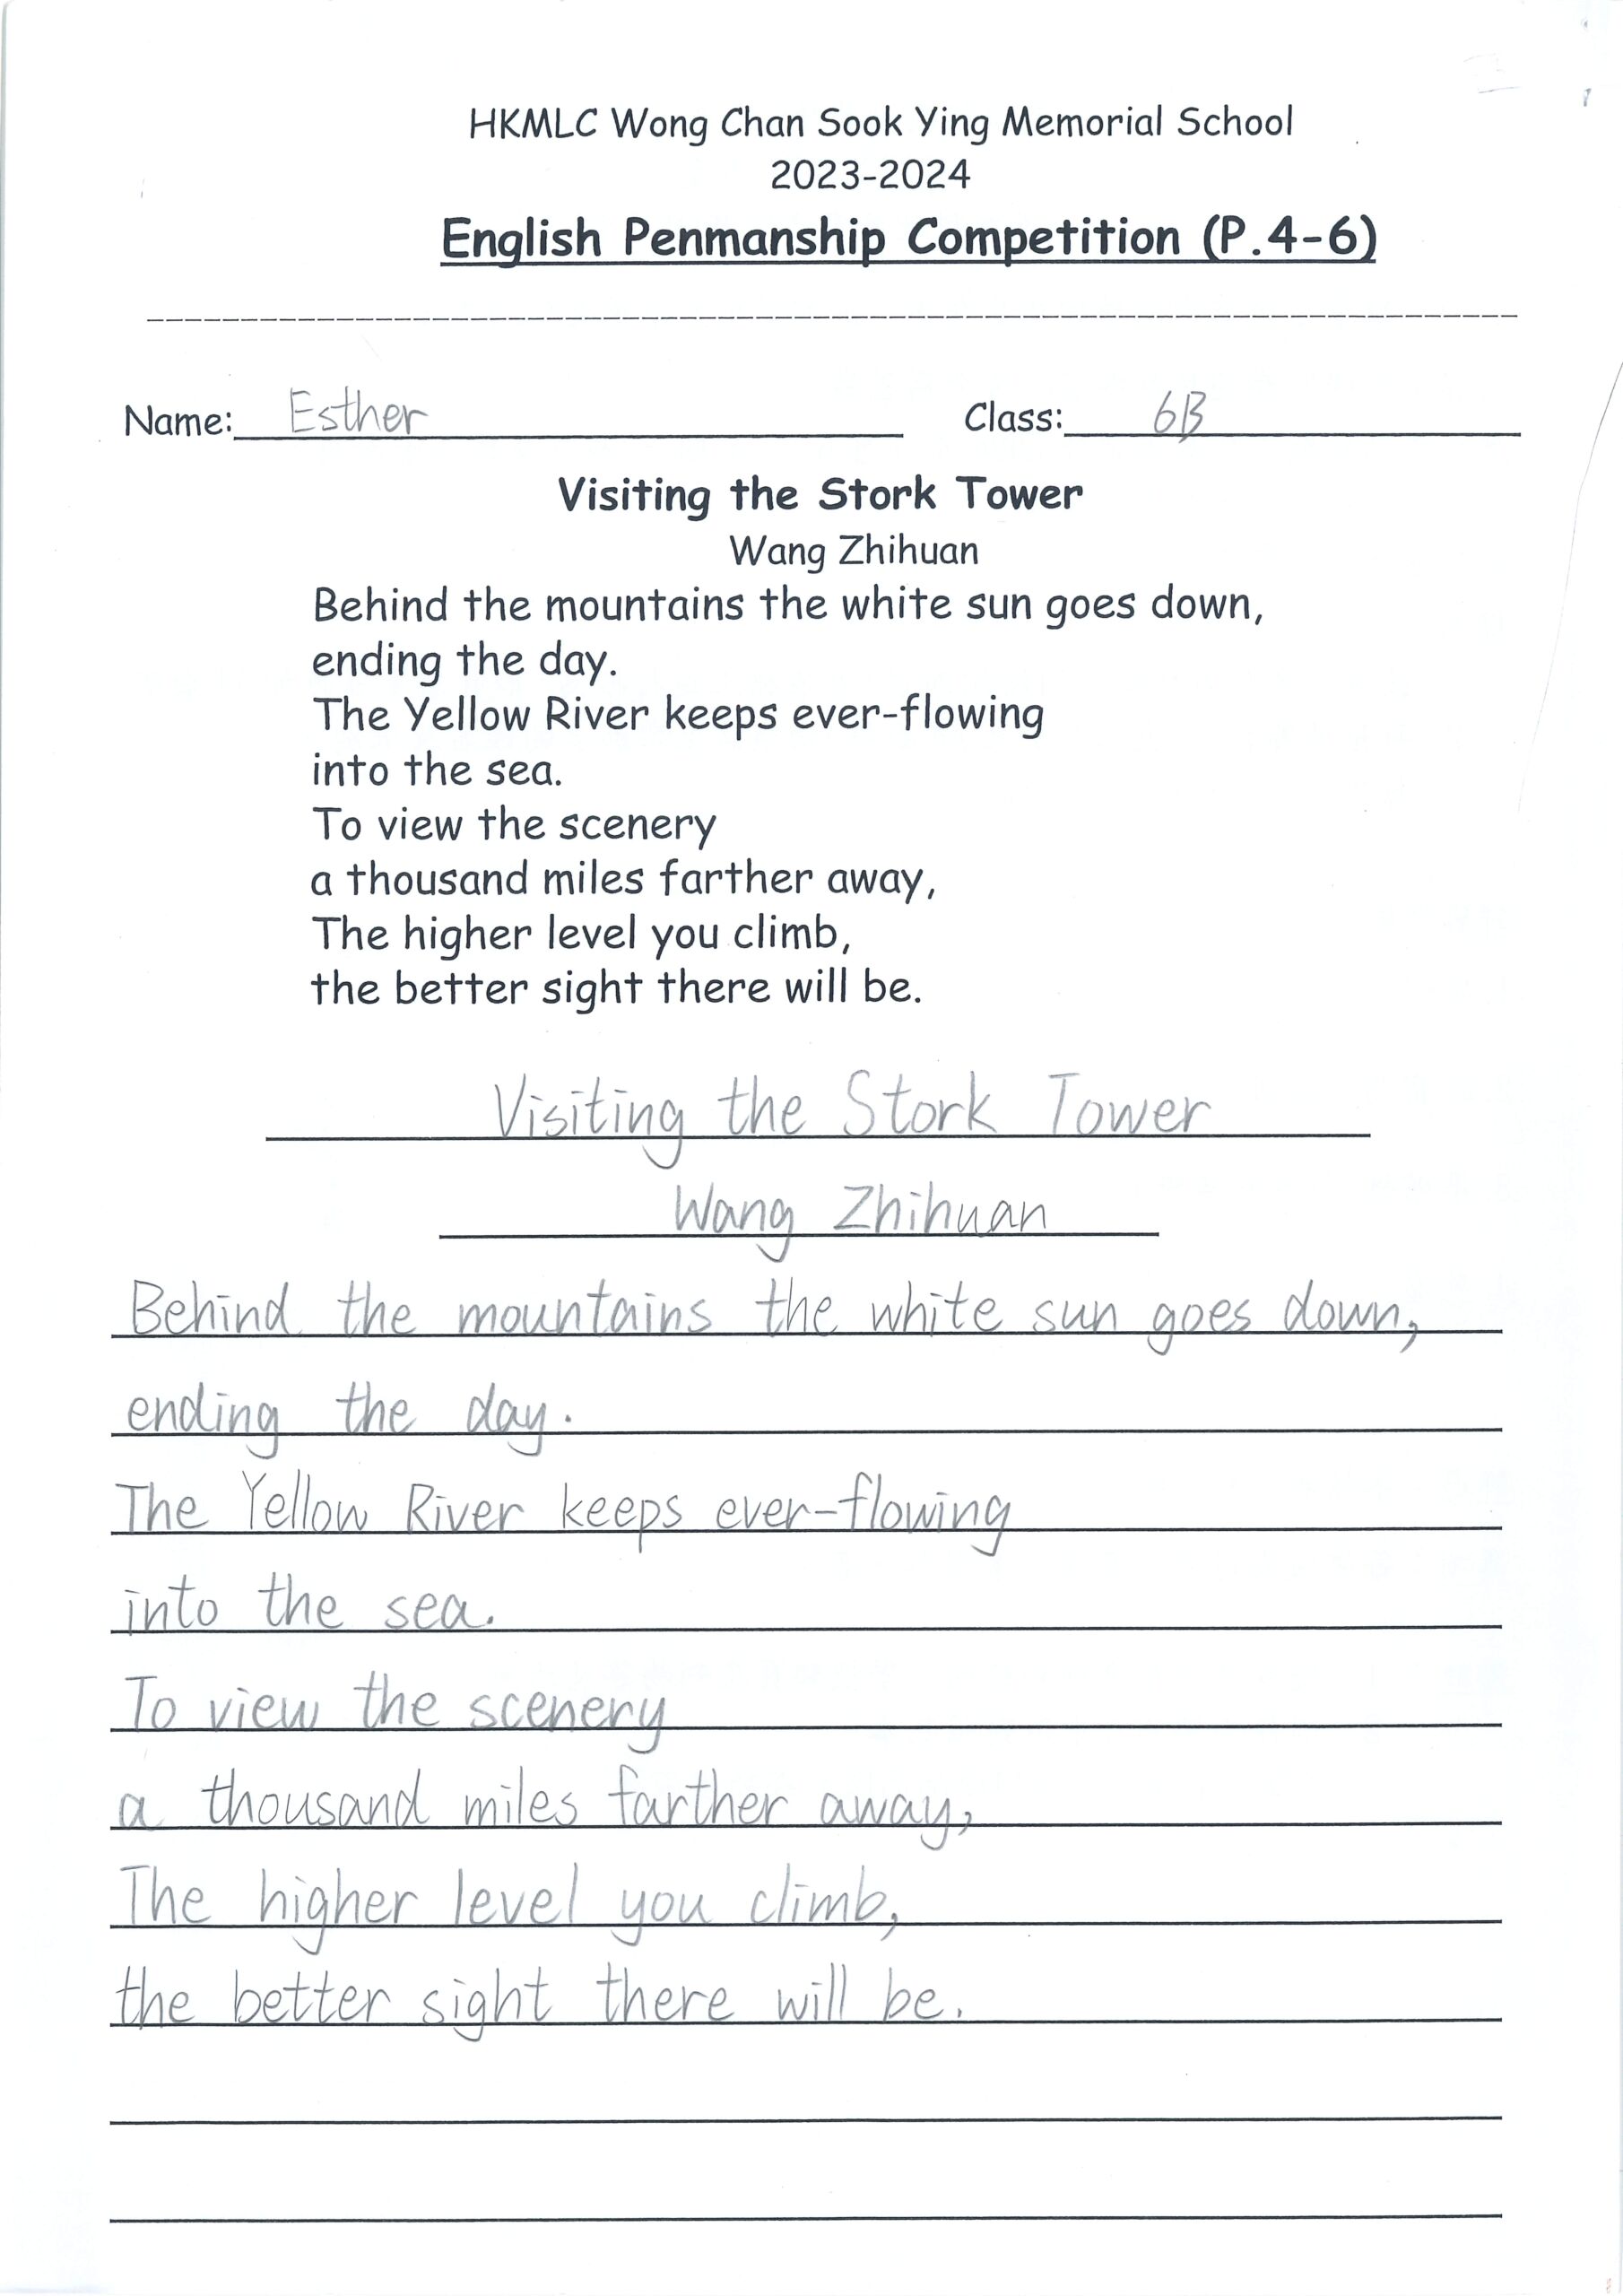 HKMLC Wong Chan Sook Ying Memorial School
2023-2024
English Penmanship Competition (P.4-6)
Name: Esther Class: 6B
Visiting the Stork Tower
Wang Zhihuan
Behind the mountains the white sun goes down,
ending the day.
The Yellow River keeps ever-flowing
into the sea.
To view the scenery
a thousand miles farther away,
The higher level you climb,
the better sight there will be.
Visiting the Stork Tower
Wang Zhihuan
Behind the mountains the white sun goes down,
ending the day.
The Yellow River keeps ever-flowing
into the sea.
To view the scenery
a thousand miles farther away,
The higher level you climb,
the better sight there will be.